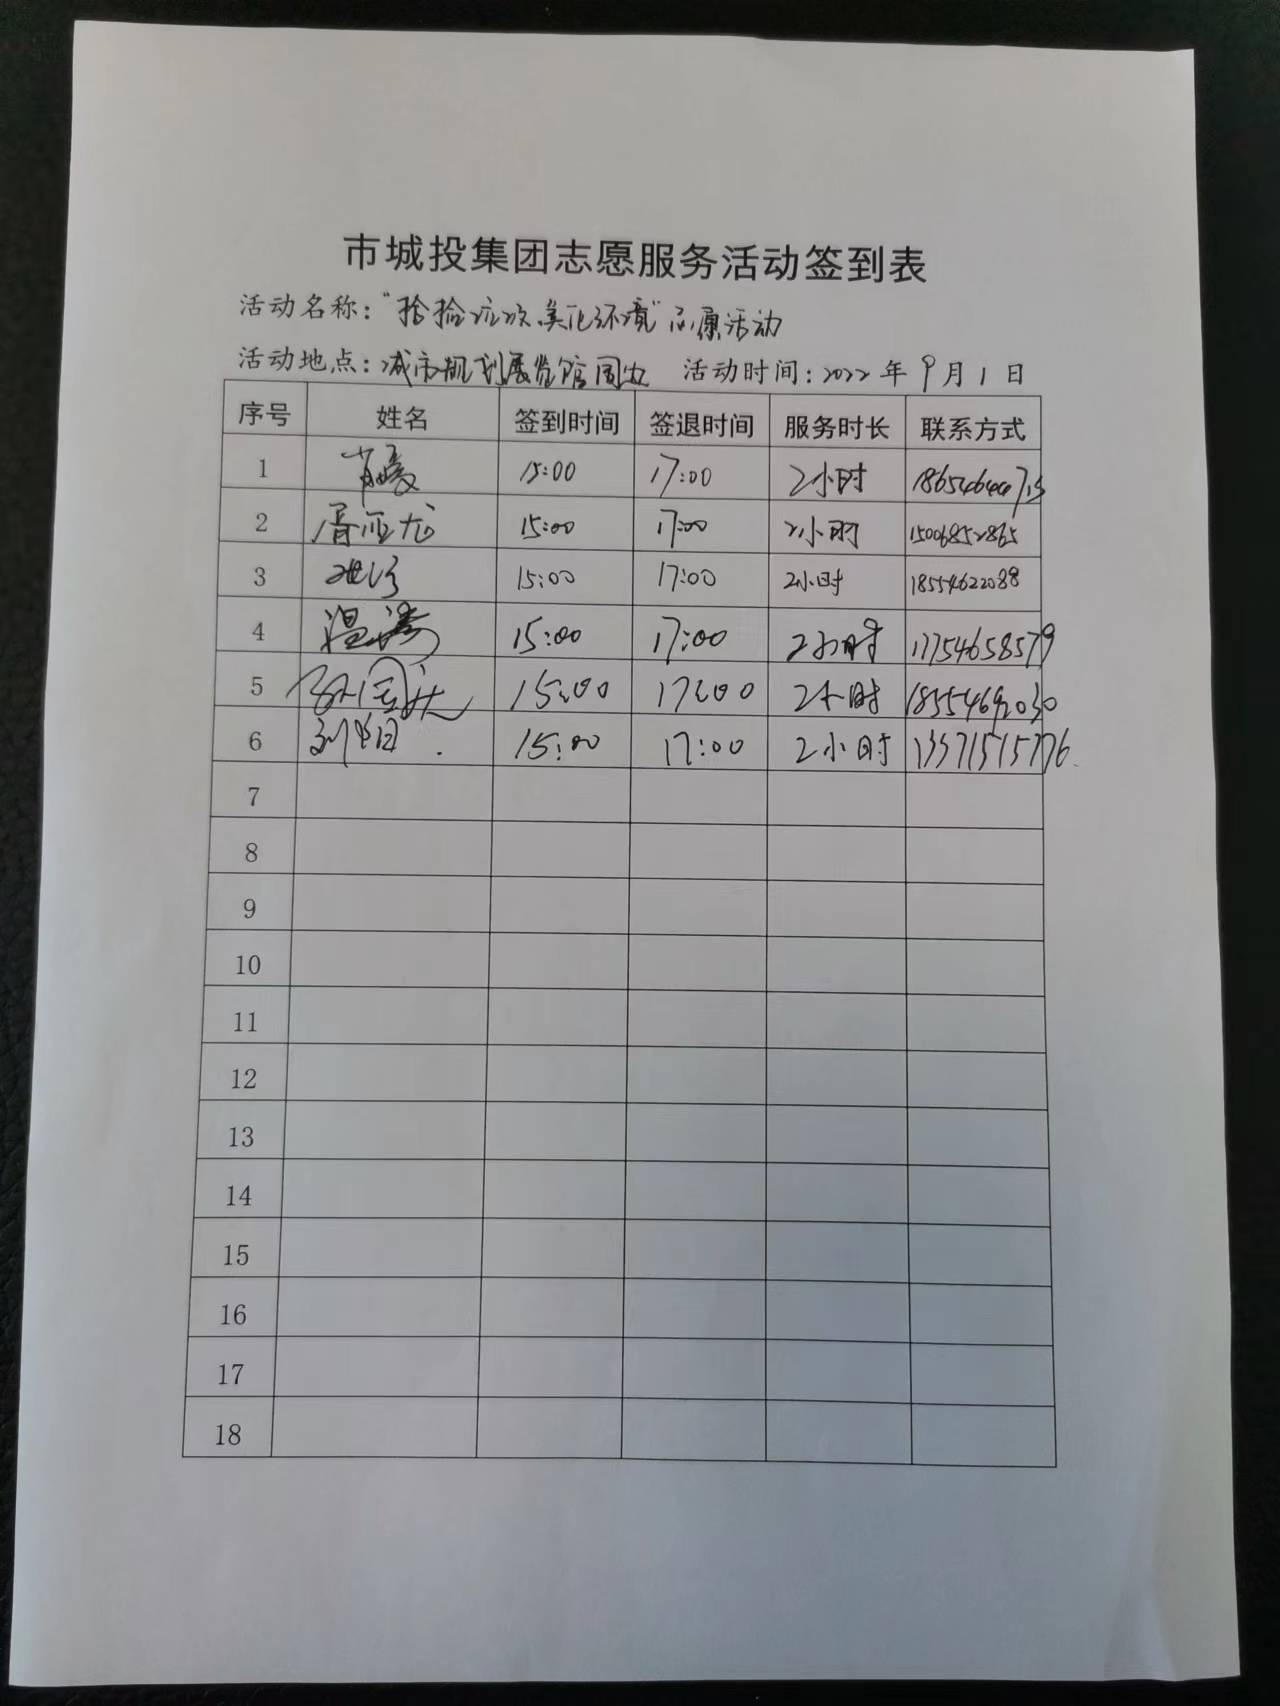 市城投集团志愿服务活动签到表
活动名称："捡捡垃圾美化环境"志愿活动
活动地点：城市规划展览馆周边 活动时间：2022年9月1日
序号 姓名 签到时间 签退时间 服务时长 联系方式
1 15:00 17:00 2小时
2 15:00 17:00 2小时 15006852865
3 15:00 17:00 2小时 18554622088
4 温涛 15:00 17:00 2小时 17754658579
5 15:00 17:00 2小时 18554692030
6 15:00 17:00 2小时 13371515776
7
8
9
10
11
12
13
14
15
16
17
18